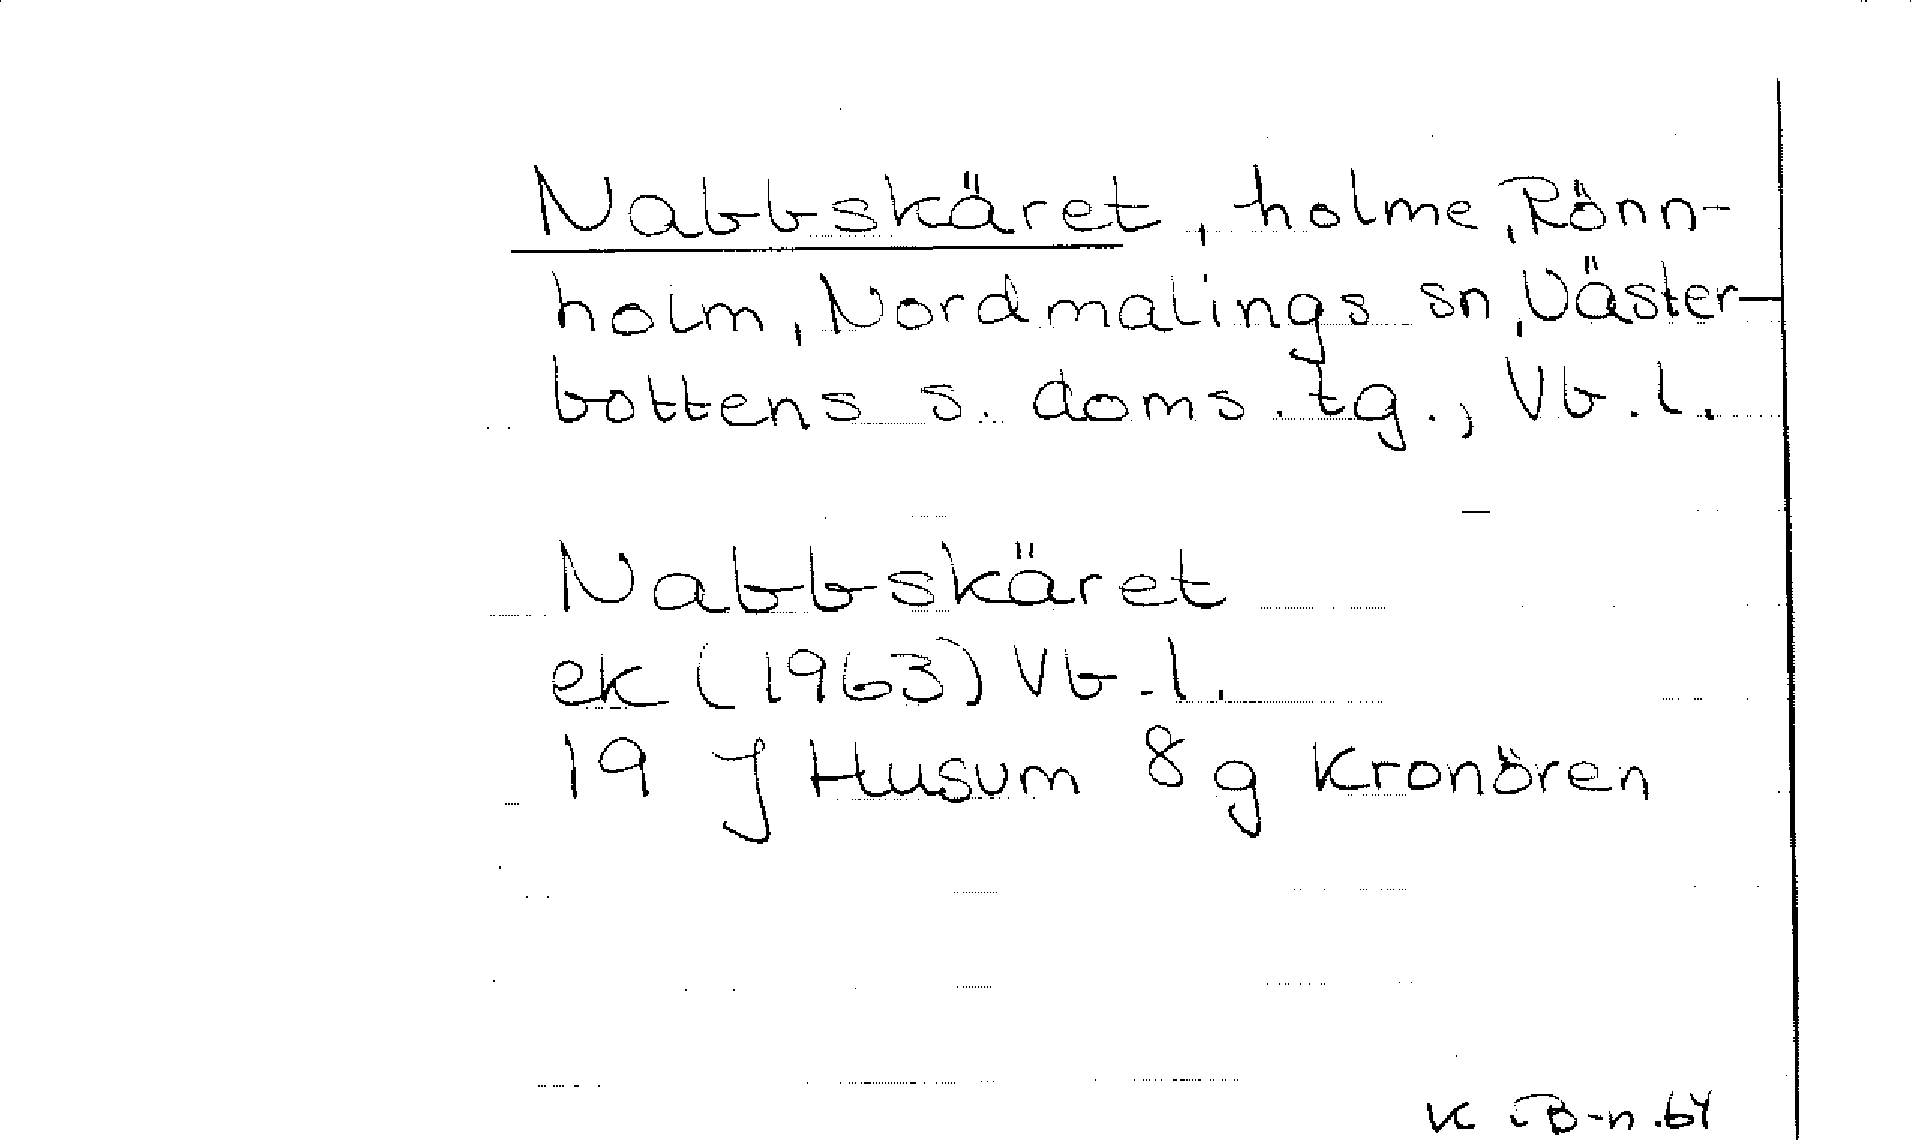 Nabbskäret, holme, Rönn-
holm, Nordmalings sn, Väster-
bottens s. doms. tg., Vb. l.
Nabbskäret
ek (1963) Vb. l.
19 J Husum 8 g Kronören
K B-n. 64